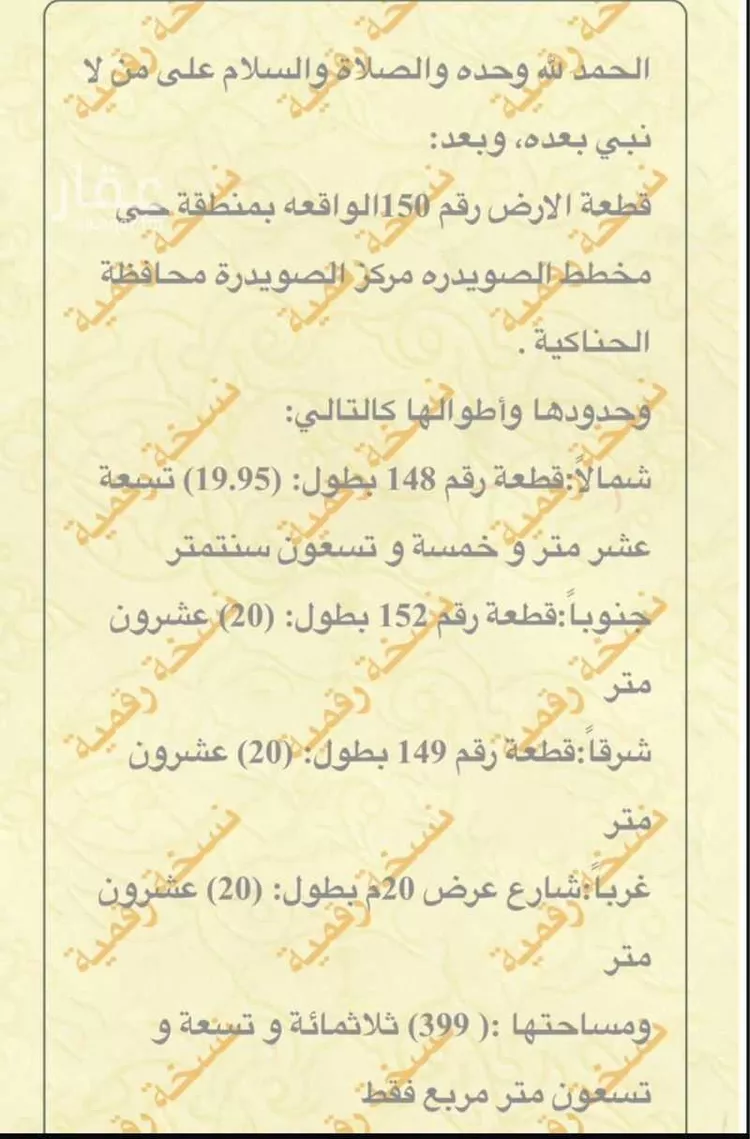 الحمد لله وحده والصلاة والسلام على من لا
نبي بعده، وبعد:
قطعة الارض رقم 150الواقعه بمنطقة حي
مخطط الصويدره مركز الصويدرة محافظة
الحناكية .
وحدودها وأطوالها كالتالي:
شمالاً:قطعة رقم 148 بطول: (19.95) تسعة
عشر متر و خمسة و تسعون سنتمتر
جنوباً:قطعة رقم 152 بطول: (20) عشرون
متر
شرقاً:قطعة رقم 149 بطول: (20) عشرون
متر
غرباً:شارع عرض 20م بطول: (20) عشرون
متر
ومساحتها :( 399) ثلاثمائة و تسعة و
تسعون متر مربع فقط
نسخة رقمية
عقار